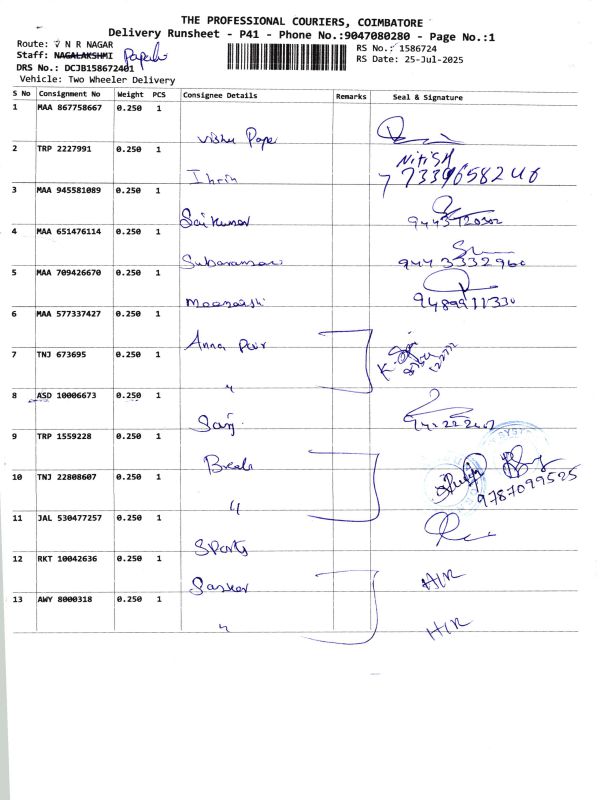 THE PROFESSIONAL COURIERS, COIMBATORE
Delivery Runsheet - P41 - Phone No.:9047080280 - Page No.:1
Route: V N R NAGAR
Staff: NAGALAKSHMI
DRS No.: DCJB158672401
Vehicle: Two Wheeler Delivery
RS No.: 1586724
RS Date: 25-Jul-2025
S No Consignment No Weight PCS Consignee Details Remarks Seal & Signature
1 MAA 867758667 0.250 1
Vishu Pope
2 TRP 2227991 0.250 1 Nitish
3 MAA 945581089 0.250 1
Sai Kumar
4 MAA 651476114 0.250 1
9443332960
5 MAA 709426670 0.250 1
9489911330
6 MAA 577337427 0.250 1
Anna
7 TNJ 673695 0.250 1
"
8 ASD 10006673 0.250 1
9 TRP 1559228 0.250 1
10 TNJ 22808607 0.250 1
"
9787099525
11 JAL 530477257 0.250 1
Sports
12 RKT 10042636 0.250 1
H/R
13 AWY 8000318 0.250 1
" H/R